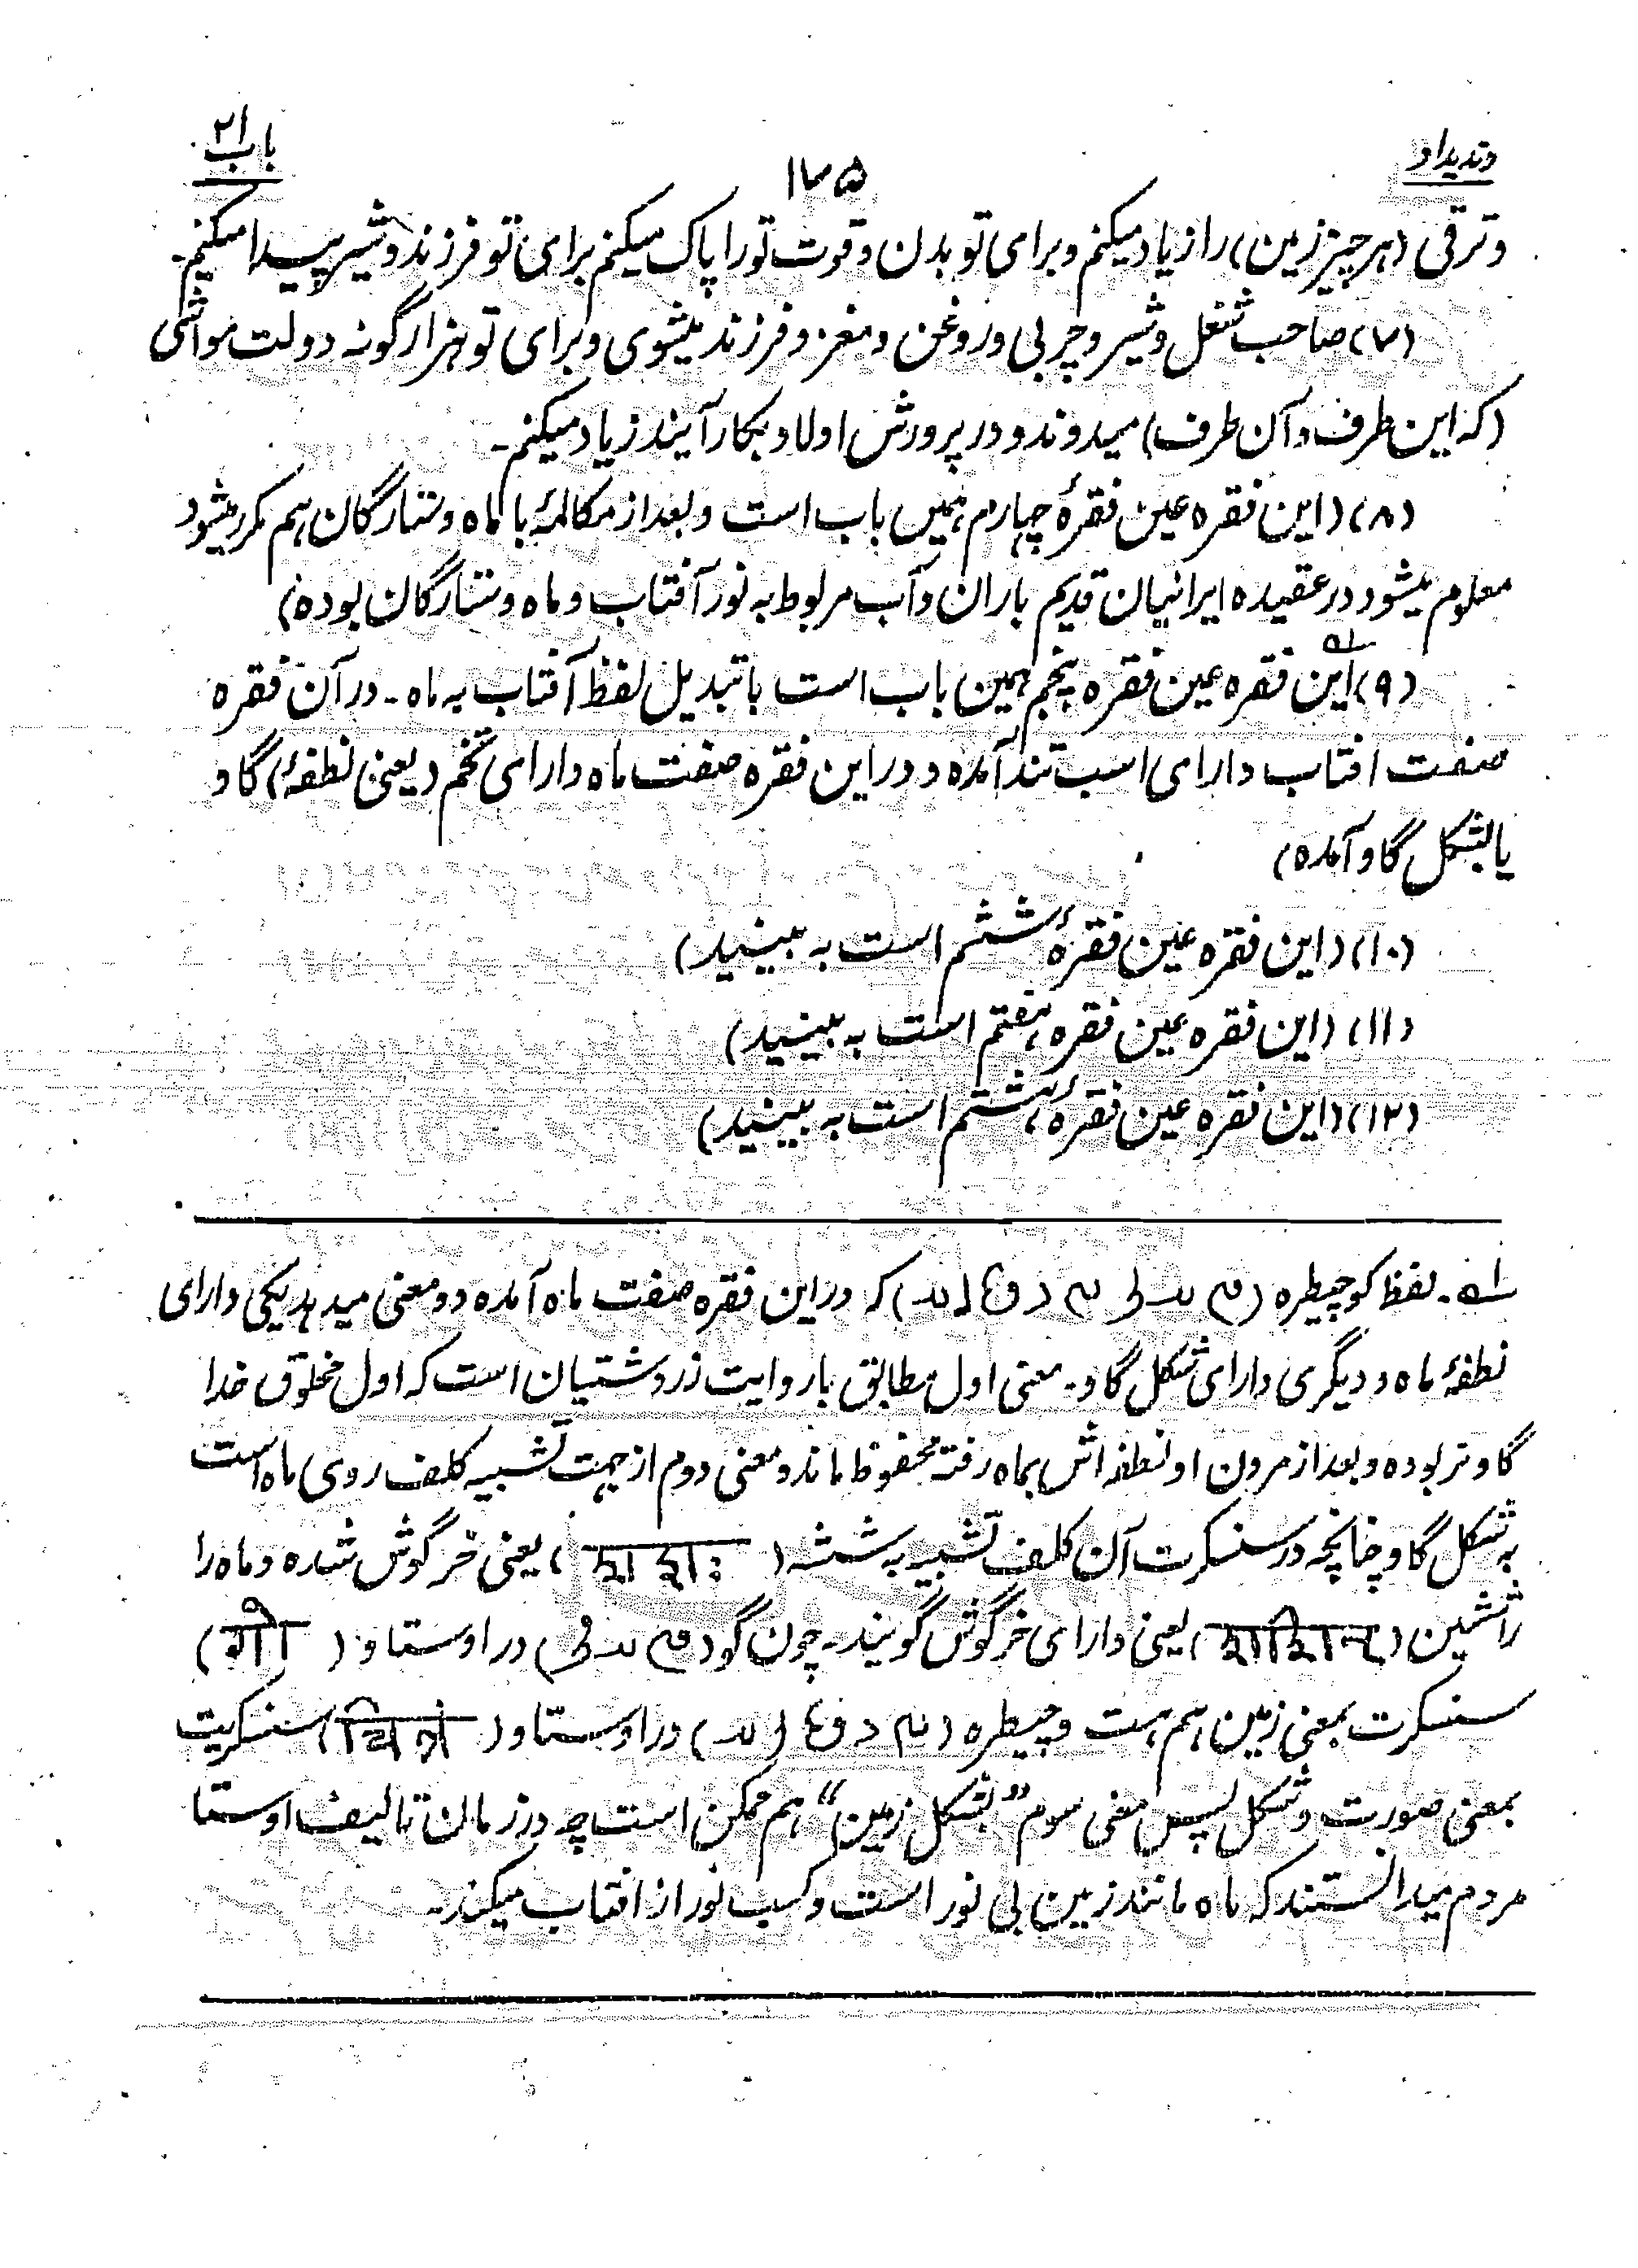 وندیداد
۱۷۵
باب ۲۱
وترقی (هر چیز زمین) را زیاد میکنم و برای تو بدن و قوت تو را پاک میکنم برای تو فرزند و شیر پیدا میکنم۔
(۷) صاحب شغل و شیر و چربی و روغن و مغز و فرزند میشوی و برای تو هزار گونه دولت مواشی
(که این طرف و آن طرف) میدوند و در پرورش اولاد بکار آیند زیاد میکنم۔
(۸) (این فقره عین فقرۀ چهارم همین باب است و بعد از مکالمۀ با ماه و ستارگان هم مکرر میشود
معلوم میشود در عقیده ایرانیان قدیم باران و آب مربوط به نور آفتاب و ماه و ستارگان بوده)
(۹) این فقره عین فقره پنجم همین باب است با تبدیل لفظ آفتاب به ماه ۔ در آن فقره
صفت افتاب دارای اسب تند آمده و در این فقره صفت ماه دارای تخم (یعنی نطفۀ) گاو
یا بشکل گاو آمده)
(۱۰) (این فقره عین فقرۀ ششم است به ببینید)
(۱۱) (این فقره عین فقره هفتم است به ببینید)
(۱۲) (این فقره عین فقرۀ هشتم است به ببینید)
۱ــه۔ لفظ کوچیطره () که در این فقره صفت ماه آمده دو معنی میدهد یکی دارای
نطفۀ ماه و دیگری دارای شکل گاو۔ معنی اول مطابق با روایت زردشتیان است که اول مخلوق خدا
گاو نر بوده و بعد از مردن او نطفه اش بماه رفته محفوظ ماند و معنی دوم از جهت تشبیه کلف روی ماه است
به شکل گاو چنانچه در سنسکرت آن کلف تشبیه به ششه (शशः) یعنی خرگوش شده و ماه را
ژششین (शशिन्) یعنی دارای خرگوش گویند۔ چون گو () در اوستا و (गो)
سنسکرت بمعنی زمین هم هست و چیطره () در اوستا و (चित्र) سنسکریت
بمعنی صورت و شکل پس معنی سوم ”بشکل زمین“ هم ممکن است چه در زمان تالیف اوستا
مردم میدانستند که ماه مانند زمین بی نور است و کسب نور از افتاب میکند۔